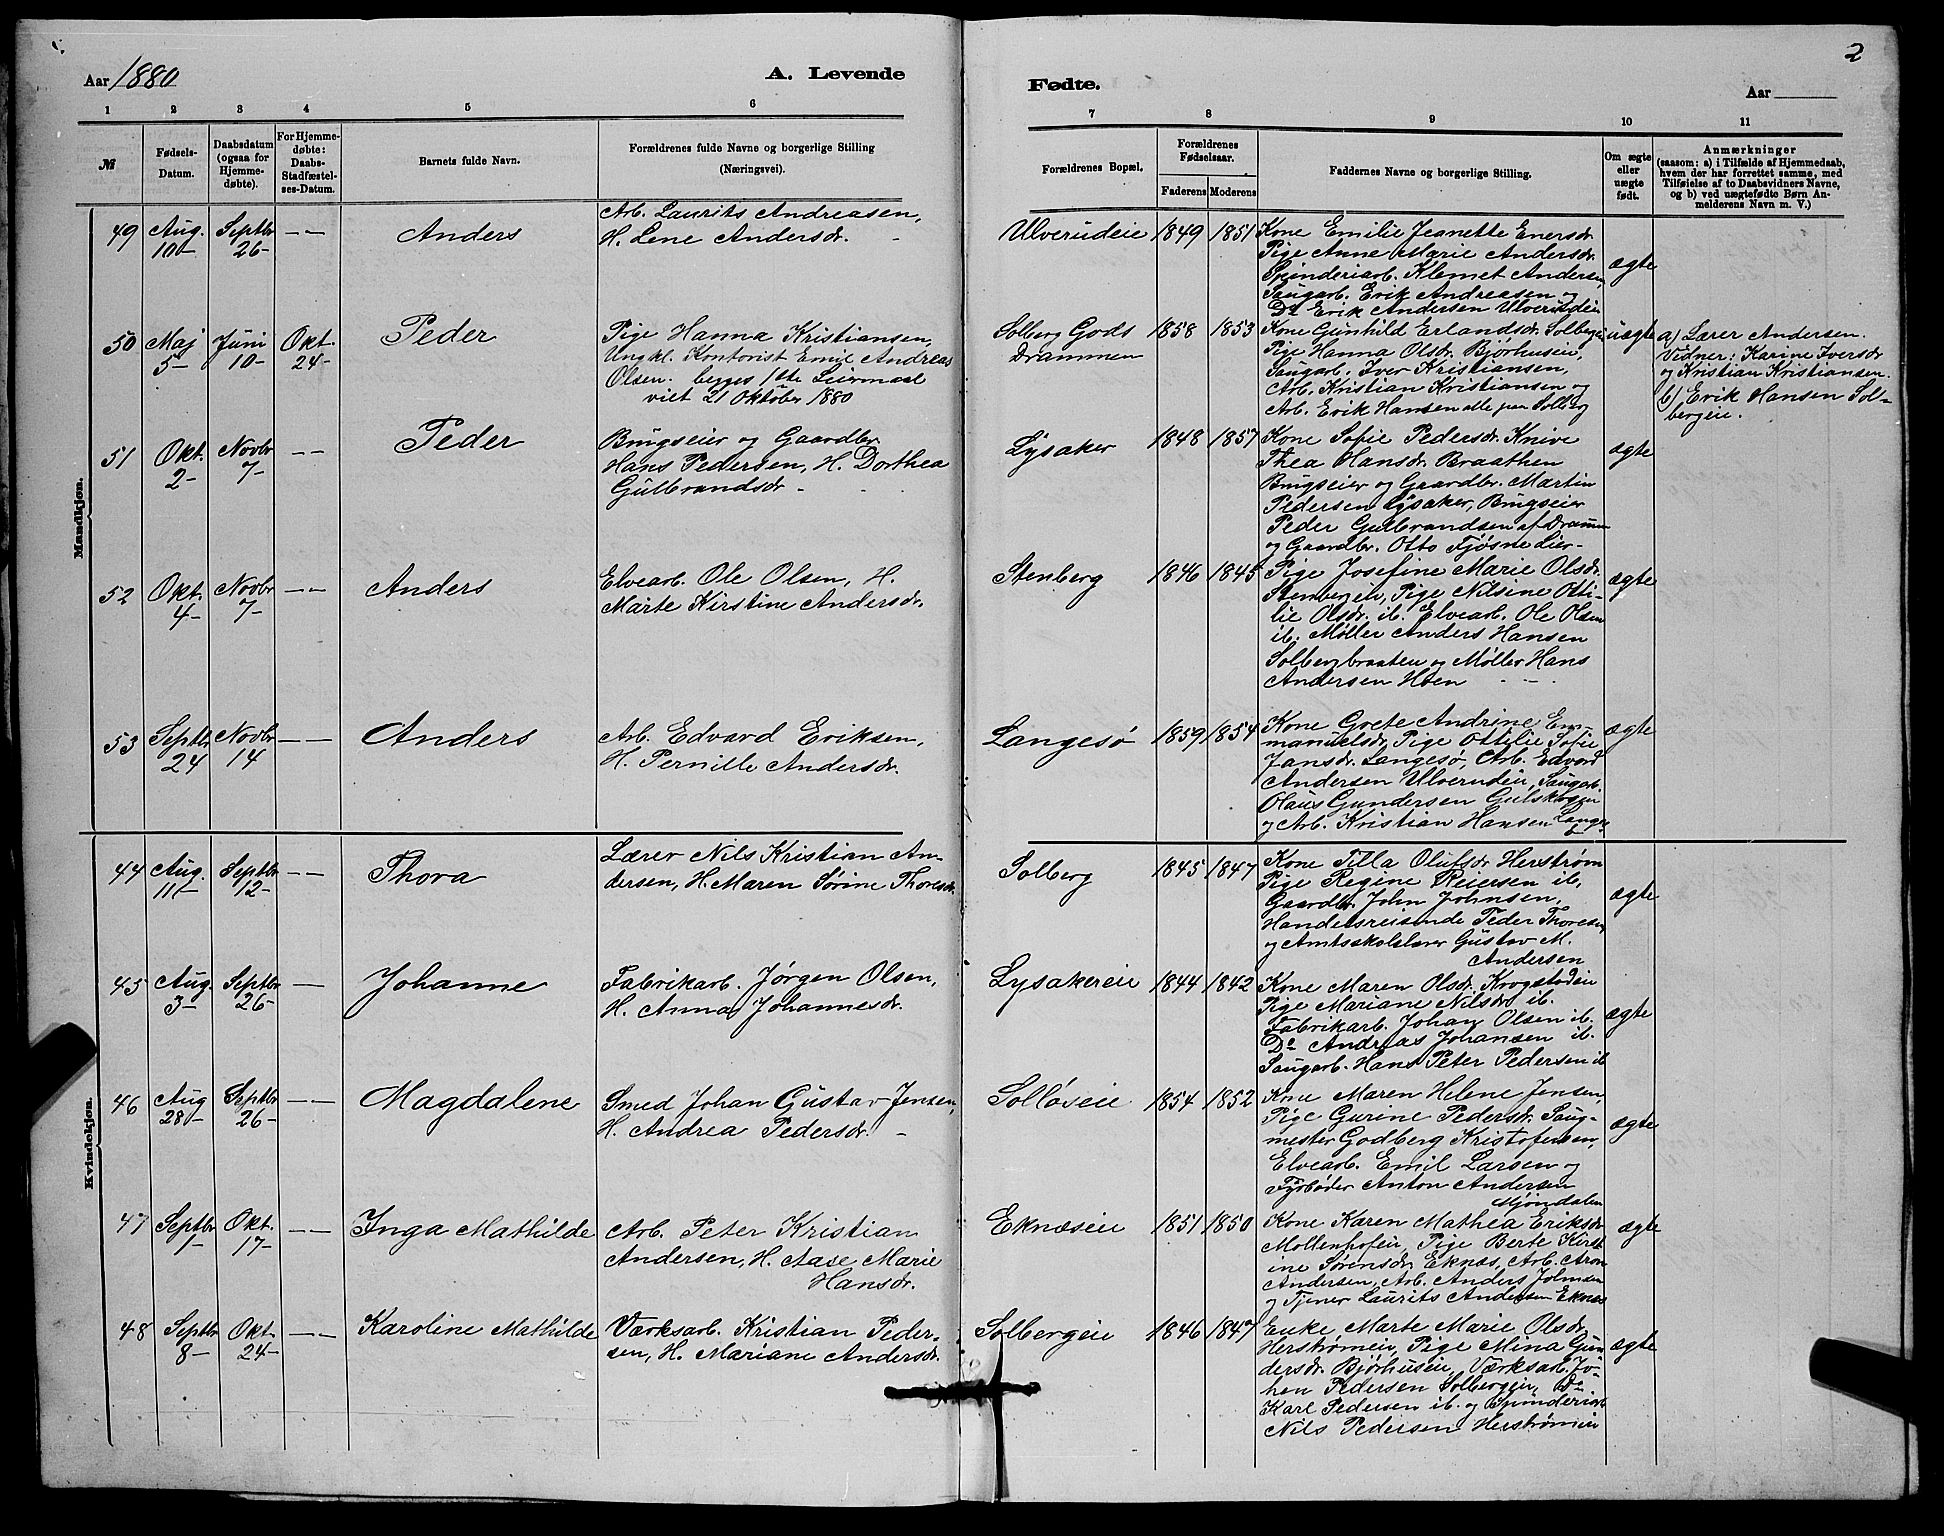 2
Aar 1880
A. Levende
Fødte.
Aar
1 2 3 4 5 6
7 8 9 10 11
№
Fødsels-
Datum.
Daabsdatum
(ogsaa for
Hjemme-
døbte).
For Hjemme-
døbte:
Daabs-
Stadfæstel-
ses-Datum.
Barnets fulde Navn.
Forældrenes fulde Navne og borgerlige Stilling
(Næringsvei).
Forældrenes Bopæl.
Forældrenes
Fødselsaar.
Faderens Moderens
Faddernes Navne og borgerlige Stilling.
Om ægte
eller
uægte
født.
Anmærkninger
(saasom: a) i Tilfælde af Hjemmedaab,
hvem der har forrettet samme, med
Tilføielse af to Daabsvidners Navne,
og b) ved uægtefødte Børn An-
melderens Navn m. V.)
Mandkjøn.
49 Aug. 10- Septbr 26- - - Anders
Arb. Laurits Andreasen,
H. Lene Andersdr. -
Ulverudeie 1849 1851
Kone Emilie Jeanette Enersdr.
Pige Anne Marie Andersdr.
Spinderiarb. Klemet Andersen,
Saugarb. Erik Andreasen og
Do Erik Andersen Ulverudeie
ægte
50 Maj 5- Juni 10- Okt. 24- Peder
Pige Hanna Kristiansen,
Ungkl. Kontorist Emil Andreas
Olsen. begges 1ste Leiermaal
viet 21 Oktober 1880
Solberg Gods
Drammen
1858 1853
Kone Gunhild Erlandsdr. Solbergeie
Pige Hanna Olsdr. Bjørhuseie,
Saugarb. Iver Kristiansen,
Arb. Kristian Kristiansen og
Arb. Erik Hansen alle paa Solberg
uægte
a) Lærer Andersen.
Vidner: Karine Iversdr
og Kristian Kristiansen.
b) Erik Hansen Sol-
bergeie.
51 Okt. 2- Novbr 7- - - Peder
Brugseier og Gaardbr.
Hans Pedersen, H. Dorthea
Gulbrandsdr -
Lysaker 1848 1857
Kone Sofie Pedersdr. Knive
Thea Hansdr. Braathen
Brugseier og Gaardbr. Martin
Pedersen Lysaker, Brugseier
Peder Gulbrandsen af Dramm
og Gaardbr. Otto Fjøsne Lier-
ægte
52 Okt. 4- Novbr 7- - - Anders
Elvearb. Ole Olsen, H.
Marte Kirstine Andersdr.
Stenberg 1846 1845
Pige Josefine Marie Olsdr.
Stenbergen, Pige Nilsine Otti-
lie Olsdr. ib. Elvearb. Ole Olsen
ib. Møller Anders Hansen
Solbergbraaten og Møller Hans
Andersen Hoen - -
ægte
53 Septbr 24 Novbr 14 - - Anders
Arb. Edvard Eriksen,
H. Pernille Andersdr.
Langesø 1859 1854
Kone Grete Andrine Em-
manuelsdr, Pige Ottilie Sofie
Jansdr. Langesø, Arb. Edvard
Andersen Ulverudeie, Saugarb.
Olaus Gundersen Gulskogen
og Arb. Kristian Hansen Langesø
ægte
Kvindekjøn.
44 Aug. 11- Septbr 12- - - Thora
Lærer Nils Kristian An-
dersen, H. Maren Sørine Thoresdr
Solberg 1845 1847
Kone Tilla Olufsdr Herstrøm
Pige Regine Reiersen ib,
Gaardbr. John Johnsen,
Handelsreisende Peder Thoresen
og Amtsskolelærer Gustav M.
Andersen
ægte
45 Aug. 3- Septbr 26- - - Johanne
Fabrikarb. Jørgen Olsen,
H. Anna Johannesdr.
Lysakereie 1844 1842
Kone Maren Olsdr. Krogstadeie
Pige Mariane Nilsdr ib.
Fabrikarb. Johan Olsen ib.
Do Andreas Johansen ib.
Saugarb. Hans Peter Pedersen ib
ægte
46 Aug 28- Septbr 26- - - Magdalene
Smed Johan Gustav Jensen,
H. Andrea Pedersdr. -
Solløseie 1854 1852
Kone Maren Helene Jensen,
Pige Gurine Pedersdr. Saug-
mester Godberg Kristofersen,
Elvearb. Emil Larsen og
Fyrbøder Anton Andersen
Mjøndalen
ægte
47 Septbr 1- Okt. 17- - - Inga Mathilde
Arb. Peter Kristian
Andersen, H. Aase Marie
Hansdr.
Eknæseie 1851 1850
Kone Karen Mathea Eriksdr
Mollenhofeie, Pige Berte Kirst
ine Sørensdr. Eknæs, Arb. Aron
Andersen, Arb. Anders Johnsen
og Tjener Laurits Andersen Eknæs
ægte
48 Septbr 8- Okt. 24- - - Karoline Mathilde
Værksarb. Kristian Peder-
sen, H. Mariane Andersdr.
Solbergeie 1846 1847
Enke Marte Marie Olsdr.
Herstrømen, Pige Mina Gun
dersdr. Bjørhuseie, Værksarb. Jo-
hen Pedersen Solbergeie, Do
Karl Pedersen ib. og Spinderiarb
Nils Pedersen Herstrømeie
ægte